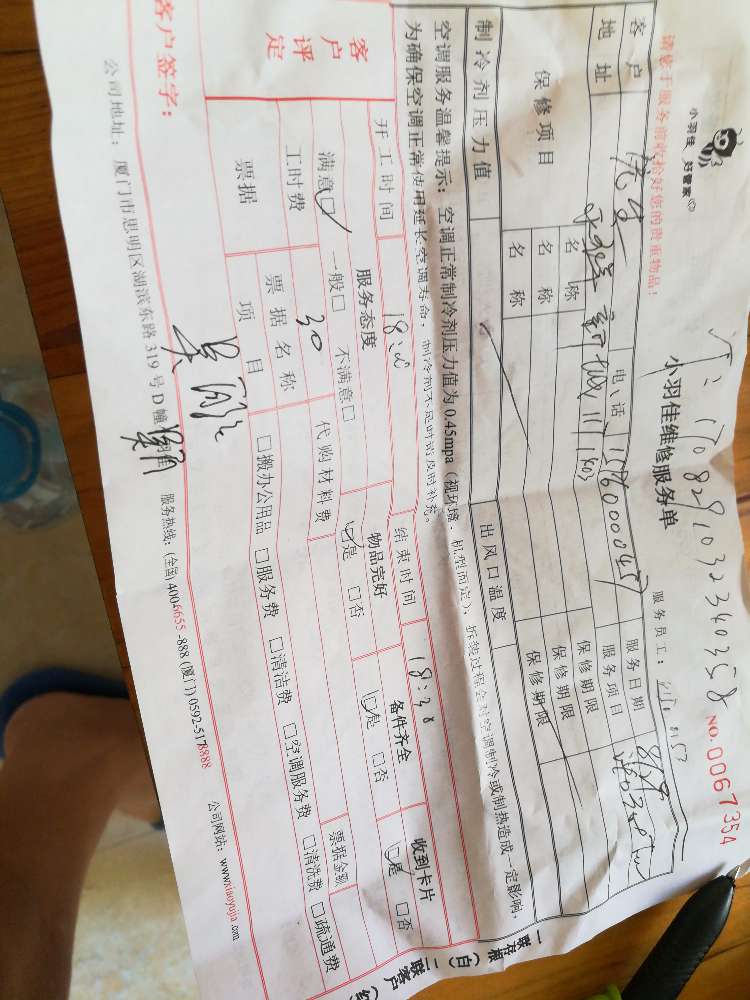 小羽佳 好管家
请您于服务前收检好您的贵重物品!
小羽佳维修服务单
NO. 0067354
服务员工:
客户
电话
服务日期
地址
服务项目
保修项目
名称
保修期限
名称
保修期限
名称
保修期限
制冷剂压力值
出风口温度
空调服务温馨提示:空调正常制冷剂压力值为0.45mpa(视环境、机型而定),拆装过程会对空调制冷或制热造成一定影响,
为确保空调正常使用延长空调寿命,制冷剂不足时请及时补充。
客户评定
开工时间
结束时间 18:30
服务态度
物品完好
备件齐全
收到卡片
满意□ 一般□ 不满意□
□是 □否
□是 □否
□是 □否
工时费 30 代购材料费
票据
票据名称
票据金额
项目
□搬办公用品 □服务费 □清洁费 □空调服务费 □清洗费 □疏通费
客户签字:
公司地址:厦门市思明区湖滨东路319号D幢
服务热线:(全国)4006655-888 (厦门)0592-5178888
公司网站:www.xiaoyujia.com
一联存根(白) 二联客户